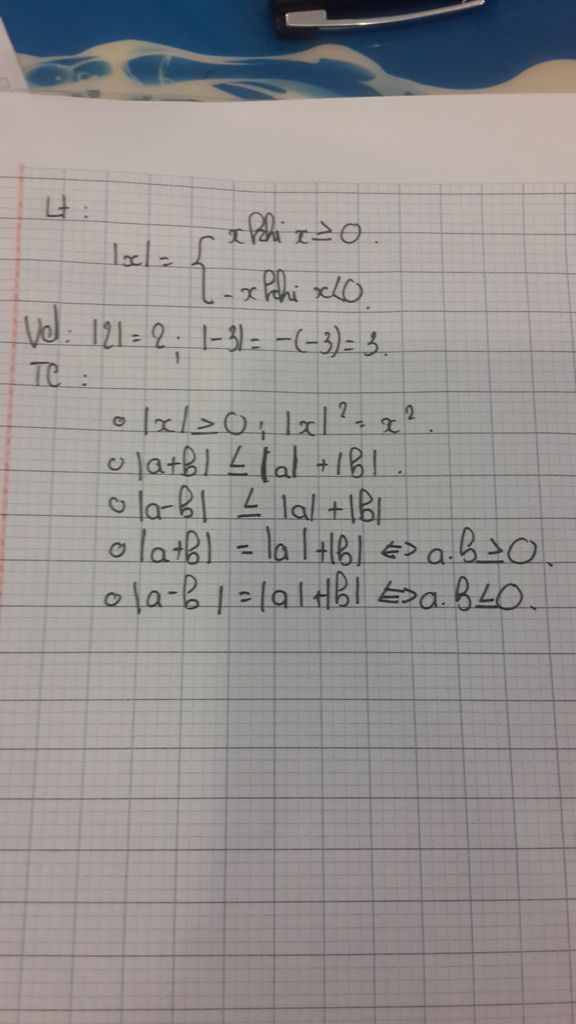 Lt:
|x| = { x khi x ≥ 0.
-x khi x<0.
Vd: |2| = 2; |-3| = -(-3) = 3.
TC:
o |x| ≥ 0; |x|² = x².
o |a+b| ≤ |a| + |b|.
o |a-b| ≤ |a| + |b|
o |a+b| = |a| + |b| ⇔ a.b ≥ 0.
o |a-b| = |a| + |b| ⇔ a.b ≤ 0.